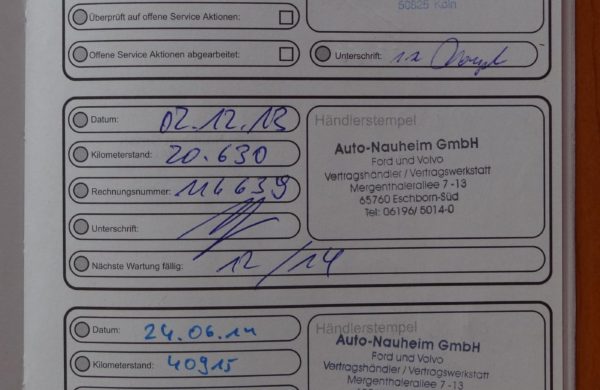 50825 Köln
Überprüft auf offene Service Aktionen:
Offene Service Aktionen abgearbeitet:
Unterschrift:
Datum: 02.12.13
Kilometerstand: 20.630
Rechnungsnummer: 116639
Unterschrift:
Nächste Wartung fällig: 12/14
Händlerstempel
Auto-Nauheim GmbH
Ford und Volvo
Vertragshändler / Vertragswerkstatt
Mergenthalerallee 7 -13
65760 Eschborn-Süd
Tel: 06196/ 5014-0
Datum: 24.06.14
Kilometerstand: 40915
Händlerstempel
Auto-Nauheim GmbH
Ford und Volvo
Vertragshändler / Vertragswerkstatt
Mergenthalerallee 7 -13